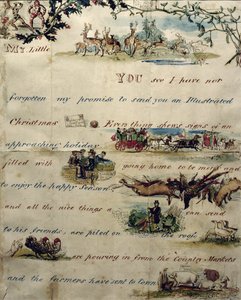 My Little
YOU see I have not
forgotten my promise to send you an Illustrated
Christmas Every thing shews signs of an
approaching holiday.
filled with going home to be merry and
to enjoy the happy Season
and all the nice things a can send
to his friends, are piled on the roof.
are pouring in from the Country Markets
and the Farmers have sent to town